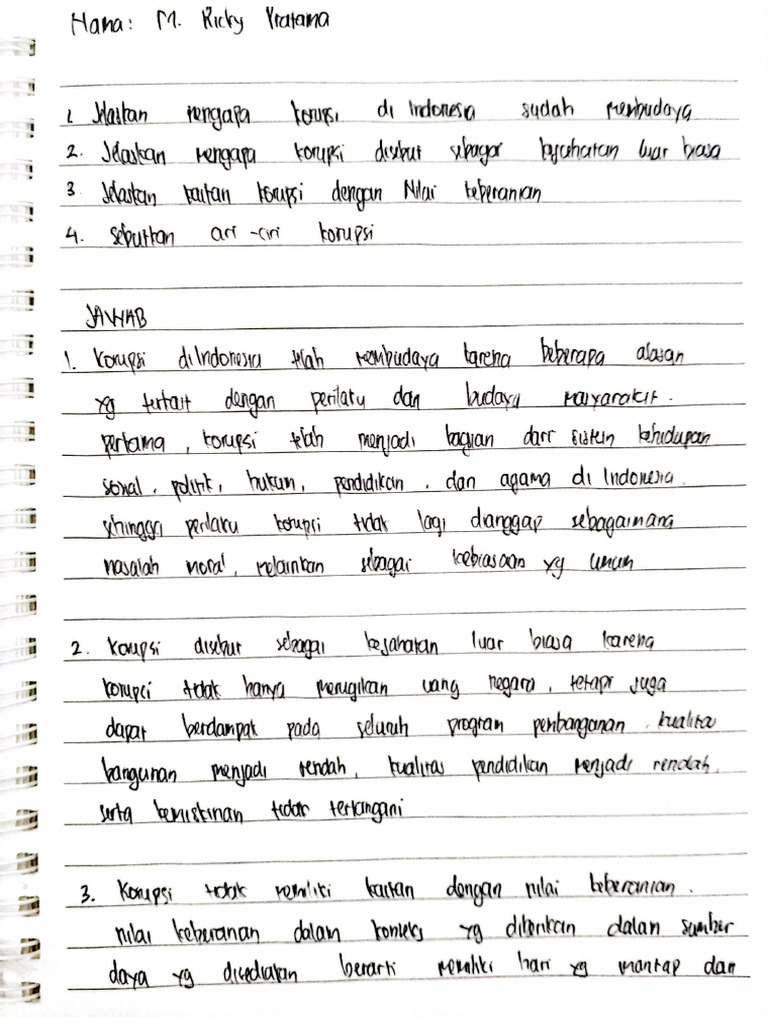 Nama: M. Ricky Pratama
1. Jelaskan mengapa korupsi di Indonesia sudah membudaya
2. Jelaskan mengapa korupsi disebut sebagai kejahatan luar biasa
3. Jelaskan kaitan korupsi dengan Nilai keberanian
4. Sebutkan ciri-ciri korupsi
JAWAB
1. Korupsi diIndonesia telah membudaya karena beberapa alasan
yg terkait dengan perilaku dan budaya masyarakat.
pertama, korupsi telah menjadi bagian dari sistem kehidupan
sosial, politik, hukum, pendidikan, dan agama di Indonesia.
sehingga perilaku korupsi tidak lagi dianggap sebagaimana
masalah moral, melainkan sebagai kebiasaan yg umum
2. Korupsi disebut sebagai kejahatan luar biasa karena
korupsi tidak hanya merugikan uang negara, tetapi juga
dapat berdampak pada seluruh program pembangunan. kualitas
bangunan menjadi rendah, kualitas pendidikan menjadi rendah,
serta kemiskinan tidak tertangani
3. Korupsi tidak memiliki kaitan dengan nilai keberanian.
nilai keberanian dalam konteks yg diberikan dalam sumber
daya yg disediakan berarti memiliki hati yg mantap dan